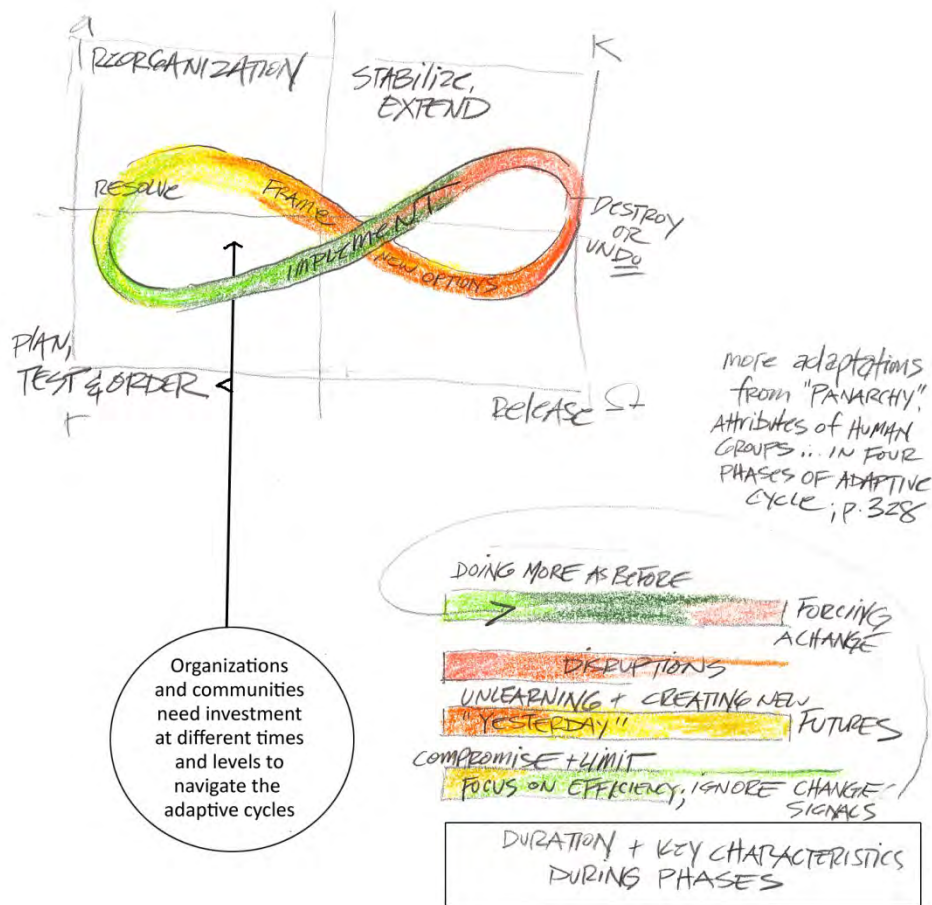 a
K
REORGANIZATION
STABILIZE,
EXTEND
RESOLVE
FRAME
IMPLEMENT
NEW OPTIONS
DESTROY
OR
UNDO
PLAN,
TEST & ORDER
r
RELEASE Ω
more adaptations
from "PANARCHY",
Attributes of HUMAN
GROUPS... IN FOUR
PHASES OF ADAPTIVE
CYCLE; p. 328
DOING MORE AS BEFORE
FORCING
A CHANGE
DISRUPTIONS
UNLEARNING + CREATING NEW
"YESTERDAY"
FUTURES
COMPROMISE + LIMIT
FOCUS ON EFFICIENCY; IGNORE CHANGE
SIGNALS
DURATION + KEY CHARACTERISTICS
DURING PHASES
Organizations
and communities
need investment
at different times
and levels to
navigate the
adaptive cycles